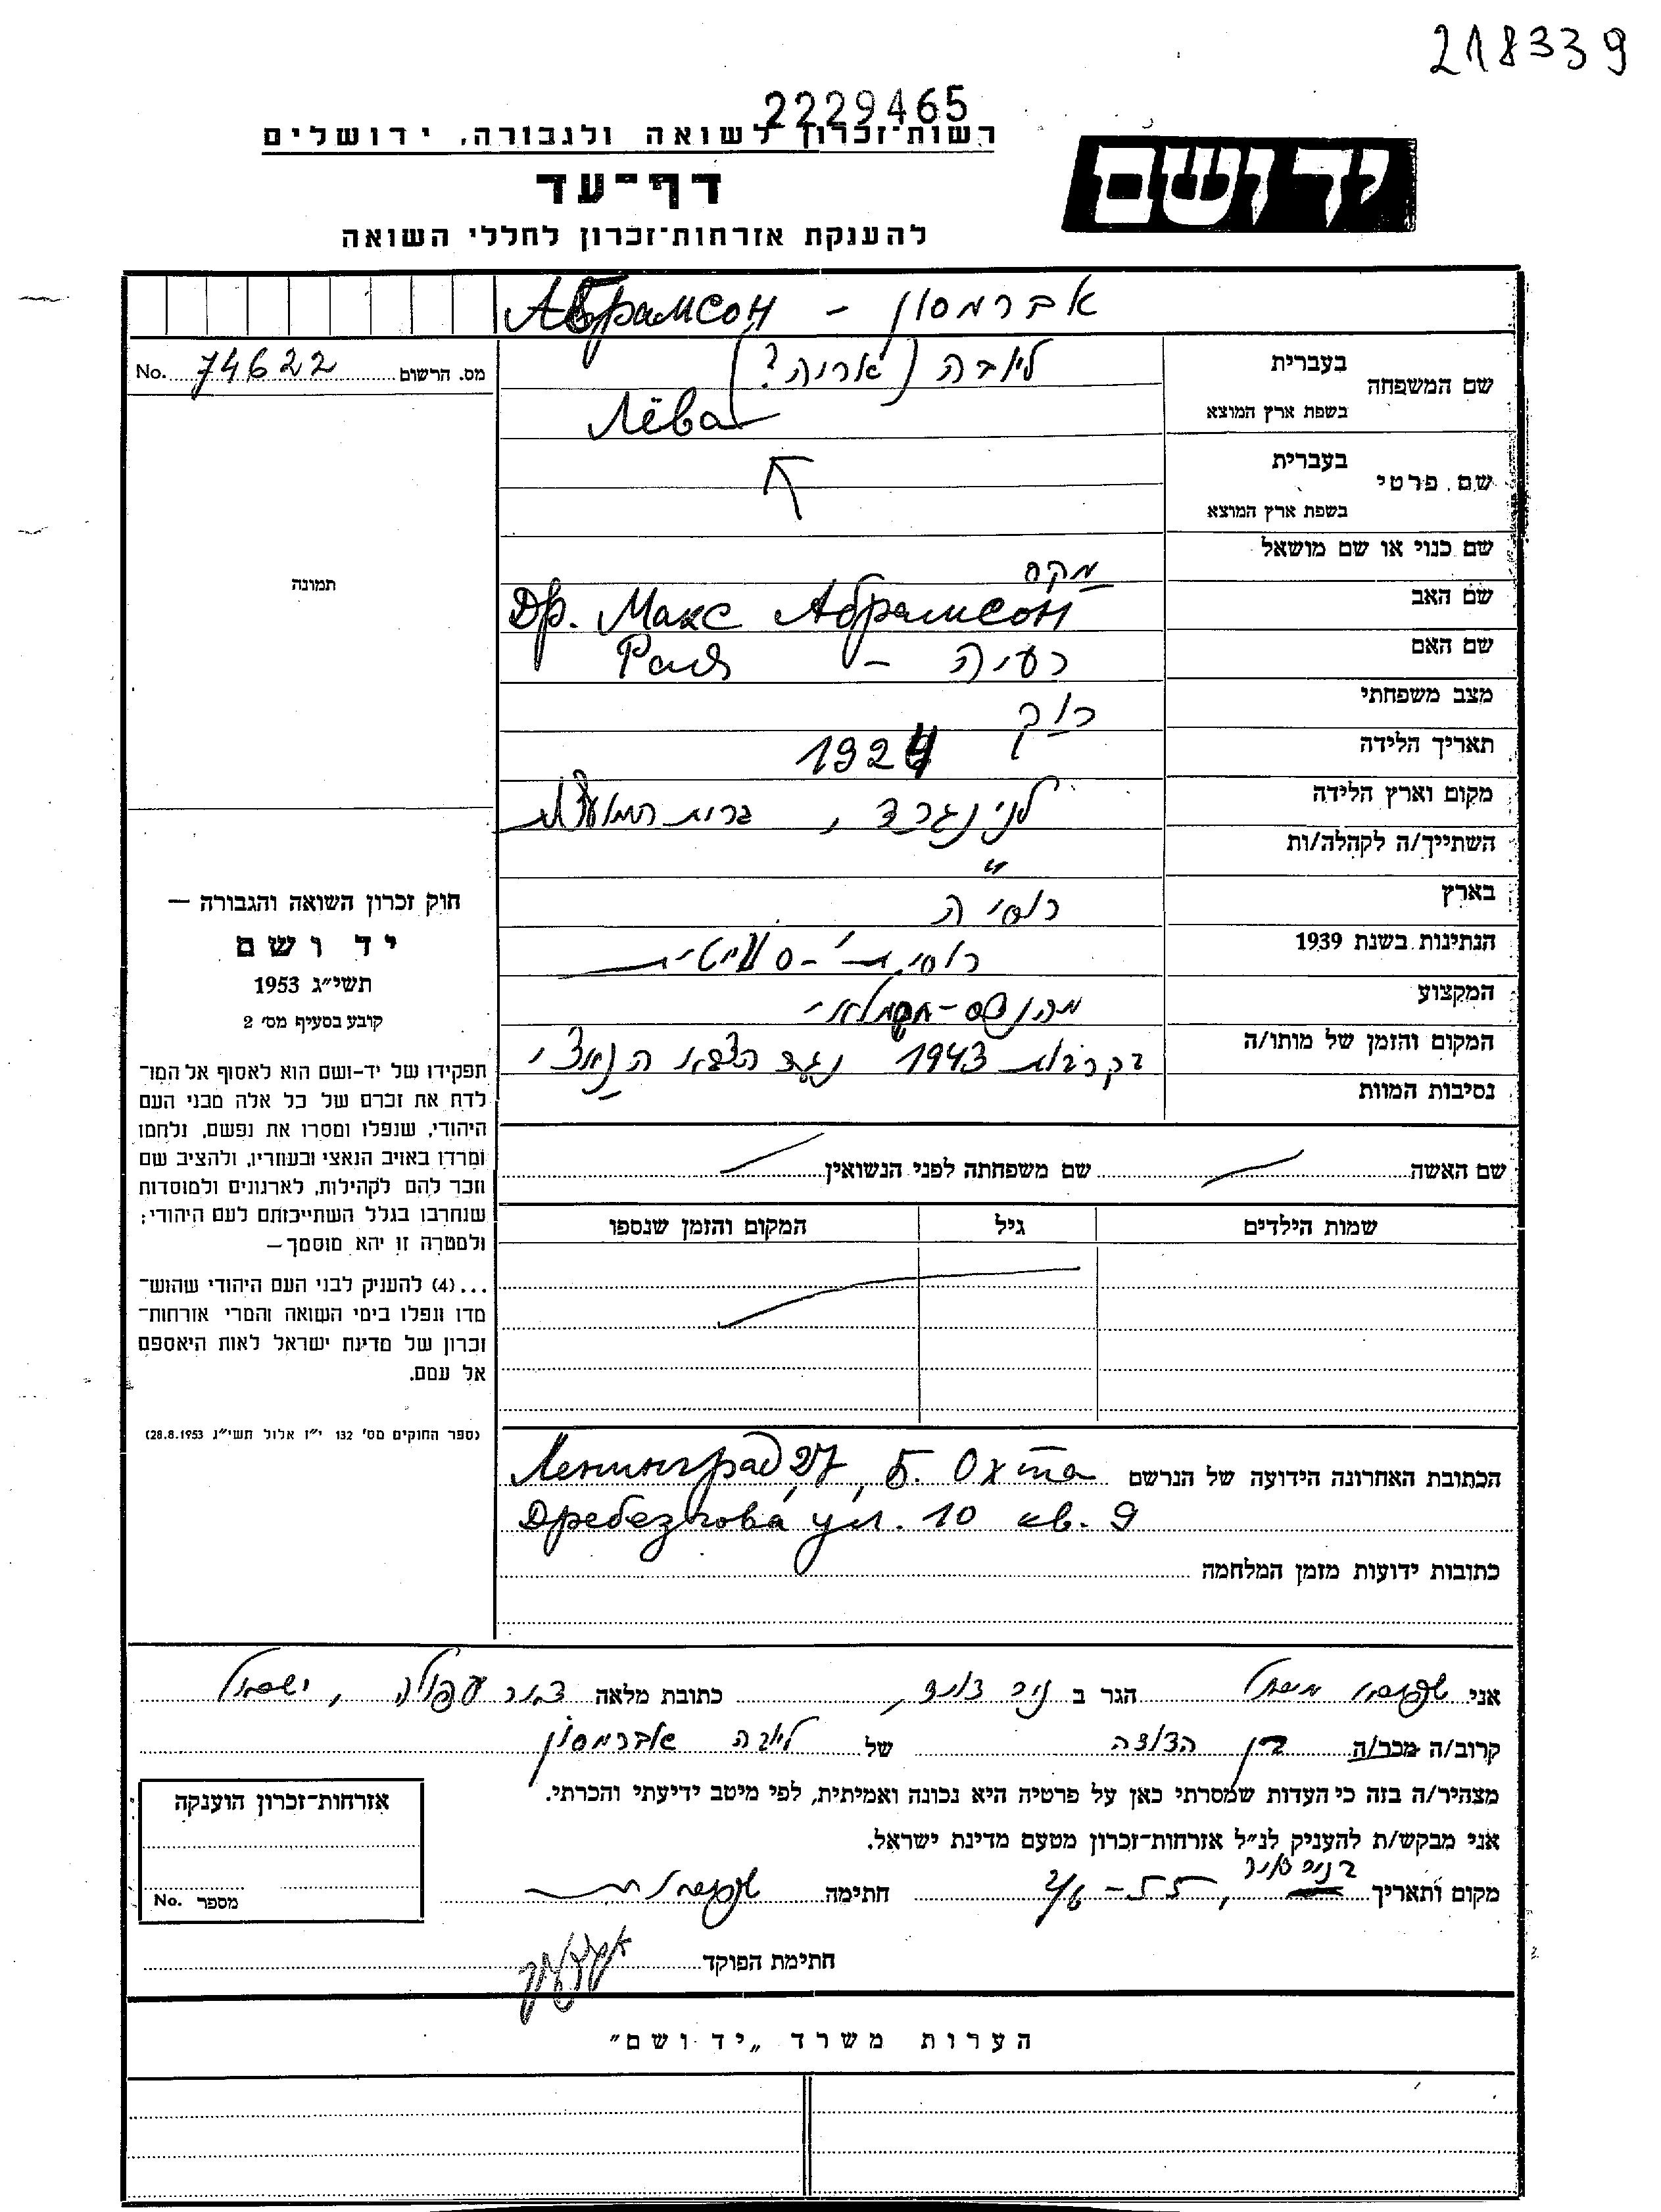 218339
2229465
רשות־זכרון לשואה ולגבורה, ירושלים
יד ושם
דף־עד
להענקת אזרחות־זכרון לחללי השואה
אברמסון - Абрамсон
מס. הרשום 74622 No.
בעברית
שם המשפחה
בשפת ארץ המוצא
ליובה (אריה?)
Лёва
בעברית
שם פרטי
בשפת ארץ המוצא
שם כנוי או שם מושאל
תמונה
שם האב
מקס
Др. Макс Абрамсон
שם האם
רעיה - Рая
מצב משפחתי
רוק
תאריך הלידה
1924
מקום וארץ הלידה
לנינגרד, ברית המועצות
השתייך/ה לקהלה/ות
"
בארץ
רוסיה
הנתינות בשנת 1939
רוסית-סוביטית
המקצוע
מהנדס-חשמלאי
המקום והזמן של מותו/ה
בקרבות 1943 נגד הצבא הנאצי
נסיבות המוות
חוק זכרון השואה והגבורה —
יד ושם
תשי״ג 1953
קובע בסעיף מס׳ 2
תפקידו של יד-ושם הוא לאסוף אל המו־
לדת את זכרם של כל אלה מבני העם
היהודי, שנפלו ומסרו את נפשם, נלחמו
ומרדו באויב הנאצי ובעוזריו, ולהציב שם
וזכר להם לקהילות, לארגונים ולמוסדות
שנחרבו בגלל השתייכותם לעם היהודי;
ולמטרה זו יהא מוסמך —
...(4) להעניק לבני העם היהודי שהוש־
מדו ונפלו בימי השואה והמרי אזרחות־
זכרון של מדינת ישראל לאות היאספם
אל עמם.
(ספר החוקים מס׳ 132 י״ז אלול תשי״ג 28.8.1953)
שם האשה שם משפחתה לפני הנשואין
שמות הילדים גיל המקום והזמן שנספו
הכתובת האחרונה הידועה של הנרשם Ленинград, 27, Б. Охта
Дребезгова ул. 10 кв. 9
כתובות ידועות מזמן המלחמה
אני הגר ב ניר דוד, כתובת מלאה דאר עפולה, ישראל
קרוב/ה מכר/ה בן הדודה של ליובה אברמסון
מצהיר/ה בזה כי העדות שמסרתי כאן על פרטיה היא נכונה ואמיתית, לפי מיטב ידיעתי והכרתי.
אני מבקש/ת להעניק לנ״ל אזרחות־זכרון מטעם מדינת ישראל.
בניר דוד
מקום ותאריך חתימה
אזרחות־זכרון הוענקה
מספר No.
חתימת הפוקד
הערות משרד „יד ושם"